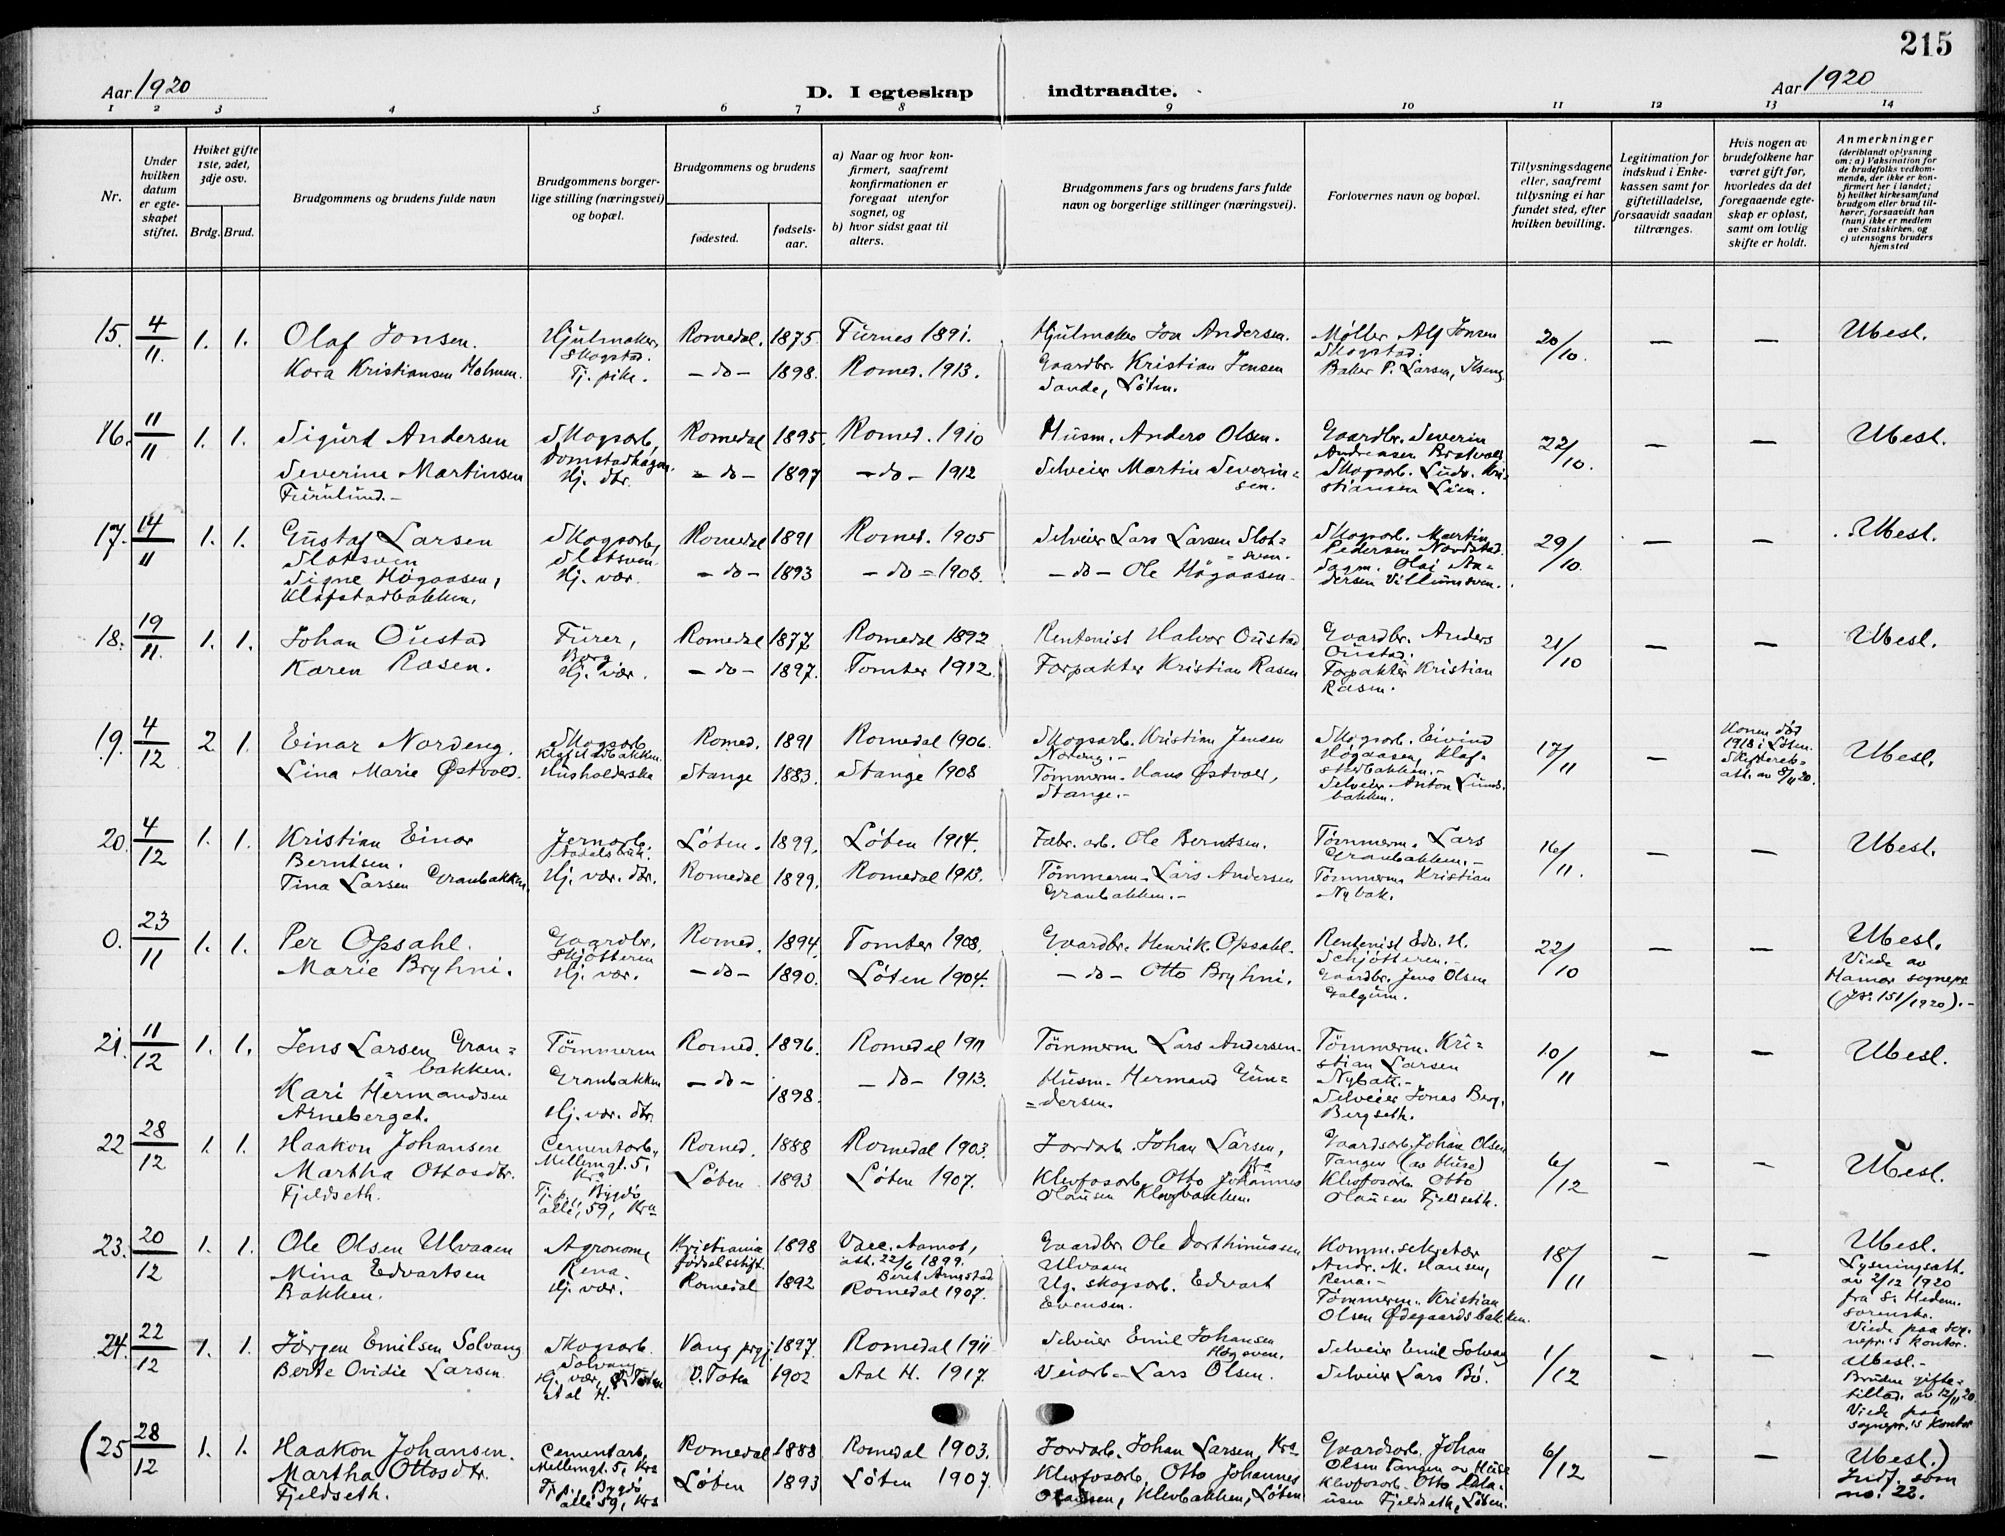 215
Aar 1920
D. I egteskap indtraadte.
Aar 1920
1 2 3 4 5 6 7 8 9 10 11 12 13 14
Nr.
Under hvilken datum er egteskapet stiftet.
Hviket gifte 1ste, 2det, 3dje osv.
Brdg. Brud.
Brudgommens og brudens fulde navn
Brudgommens borgerlige stilling (næringsvei) og bopæl.
Brudgommens og brudens
fødested.
fødselsaar.
a) Naar og hvor konfirmert, saafremt konfirmationen er foregaat utenfor sognet, og
b) hvor sidst gaat til alters.
Brudgommens fars og brudens fars fulde navn og borgerlige stillinger (næringsvei).
Forlovernes navn og bopæl.
Tillysningsdagene eller, saafremt tillysning ei har fundet sted, efter hvilken bevilling.
Legitimation for indskud i Enkekassen samt for giftetilladelse, forsaavidt saadan tiltrænges.
Hvis nogen av brudefolkene har været gift før, hvorledes da det foregaaende egteskap er opløst, samt om lovlig skifte er holdt.
Anmerkninger
(deriblandt oplysning om: a) Vaksination for de brudefolks vedkommende, der ikke er konfirmert her i landet; b) hvilket kirkesamfund brudgom eller brud tilhører, forsaavidt han (hun) ikke er medlem av Statskirken, og c) utensogns bruders hjemsted
15. 4/11. 1. 1. Olaf Jonsen. Hjulmaker, Skogstad. Romedal. 1875. Furnes 1891. Hjulmaker Jon Andersen. Møller Alf Jonsen Skogstad. 20/10. — — Ubesl.
Kora Kristiansen Holmen. Tj. pike. —do— 1898. Romed. 1913. Gaardbr. Kristian Jensen Sande, Løten. Baker P. Larsen, Ilseng
16. 11/11 1. 1. Sigurd Andersen Skogsarb, Domstadhagen. Romedal 1895. Romed. 1910 Husm. Anders Olsen. Gaardbr. Severin Andreasen 22/10. — — Ubesl.
Severine Martinsen Furulund.— Hj. dtr. —do— 1897 —do— 1912 Selveier Martin Severinsen. Skogsarb. Ludv. Kristiansen Lien.
17. 14/11 1. 1. Gustaf Larsen Slotsven Skogsarb, Slotsven. Romedal 1891 Romed. 1905 Selveier Lars Larsen Slotsven. Skogsarb. Martin Pedersen Nordstad. 29/10. — — Ubesl.
Signe Høgaasen, Klafstadbakken. Hj. vær. —do— 1893 —do— 1908. —do— Ole Høgaasen. Dagm. Olaf Andersen Villumsven.
18. 19/11. 1. 1. Johan Oustad Furer, Borg Romedal 1877 Romedal 1892 Rentenist Halvor Oustad Gaardbr. Anders Oustad. 21/10 — — Ubesl.
Karen Rasen. Hj. vær. —do— 1897. Tomter 1912. Forpakter Kristian Rasen Forpakter Kristian Rasen.
19. 4/12 2 1. Einar Nordeng. Skogsarb. Klafstadbakken. Romed. 1891 Romedal 1906. Skogsarb. Kristian Jensen Nordeng.— Skogsarb. Eivind Høgaasen, Klafstadbakken.— 17/11 — Konen død 1918 i Løten. Skifteretsatt. av 8/11 20. Ubesl.
Lina Marie Østvold. Husholderske Stange 1883. Stange 1908 Tømmerm. Hans Østvold, Stange.— Selveier Anton Lundsbakken.
20. 4/12 1. 1. Kristian Einar Berntsen. Jernarb. Løten. 1899. Løten 1914. Fabr. arb. Ole Berntsen. Tømmerm. Lars Granbakken.— 16/11. — — Ubesl.
Tina Larsen Granbakken Hj. vær. dtr. Romedal 1899. Romedal 1913. Tømmerm. Lars Andersen Granbakken.— Tømmerm. Kristian Nybak.
0. 23/11 1. 1. Per Opsahl. Gaardbr. Skjøtteren Romed. 1894 Tomter 1908. Gaardbr. Henrik Opsahl. Rentenist Edv. H. Schjøtteren.— 22/10 — — Ubesl. Viede av Hamar sognepr. (Js. 151/1920).—
Marie Bryhni. Hj. vær. —do— 1890. Løten 1904. —do— Otto Bryhni. Gaardbr. Jens Olsen Galgum.
21. 11/12 1. 1. Jens Larsen Granbakken. Tømmerm Granbakken Romed. 1896. Romedal 1911 Tømmerm Lars Andersen. Tømmerm. Kristian Larsen Nybak.— 10/11 — — Ubesl.
Kari Hermandsen Arneberget. Hj. vær. dtr. —do— 1898. —do— 1913. Husm. Hermand Gundersen. Selveier Jonas Berg, Bergseth.
22 28/12 1. 1. Haakon Johansen Cementarb., Møllergt. 5, Kra Romed. 1888 Romedal 1903. Jordarb. Johan Larsen, Kra Gaardsarb. Johan Olsen Tangen (av Huse) 6/12 — — Ubesl.
Martha Ottosdtr. Fjeldseth. Tj. p., Bygdø alle, 59, Kra Løten 1893 Løten 1907. Klevfosarb. Otto Johannes Olausen Klevbakken Klevfosarb. Otto Olausen Fjeldseth.
23. 20/12 1. 1. Ole Olsen Ulvaaen Agronom, Rena. Kristiania fødselsstift. 1898 Vacc. Aamot, att. 22/6 1899. Gaardbr. Ole Dorthinusen Ulvaaen Komm. sekretær Andr. M. Hansen, Rena.— 18/11 — — Ubesl. Lysningsatt. av 2/12 1920 fra S. Hedem. sorenskr. Viede paa sognepr.'s kontor.
Mina Edvartsen Bakken. Hj. vær. Romedal 1892 Romedal 1907. Ug. skogsarb. Edvart Evensen. Tømmerm. Kristian Olsen Ødegaardsbakken.
24. 22/12 1. 1. Jørgen Emilsen Solvang Skogsarb. Solvang Vang prgj 1897. Romedal 1911 Selveier Emil Johansen Selveier Emil Solvang 1/12 — — Ubesl.— Bruden giftetillad. av 12/11 20. Viede paa sognepr.'s kontor
Berte Ovidie Larsen. Hj. vær, Aal H. V. Toten 1902 Aal H. 1917. Veiarb. Lars Olsen. Selveier Lars Bø.
(25 28/12 1. 1. Haakon Johansen. Cementarb., Møllergt. 5, Kra Romedal 1888 Romedal 1903. Jordarb. Johan Larsen, Kra Gaardsarb. Johan Olsen Tangen av Huse 6/12 — — Ubesl.) Indf. som no. 22.
Martha Ottosdtr. Fjeldseth. Tj. p. Bygdø alle 59, Kra Løten 1893 Løten 1907. Klevfosarb. Otto Johannes Olausen, Klevbakken, Løten Klevfosarb. Otto Olausen Fjeldseth, Løten.